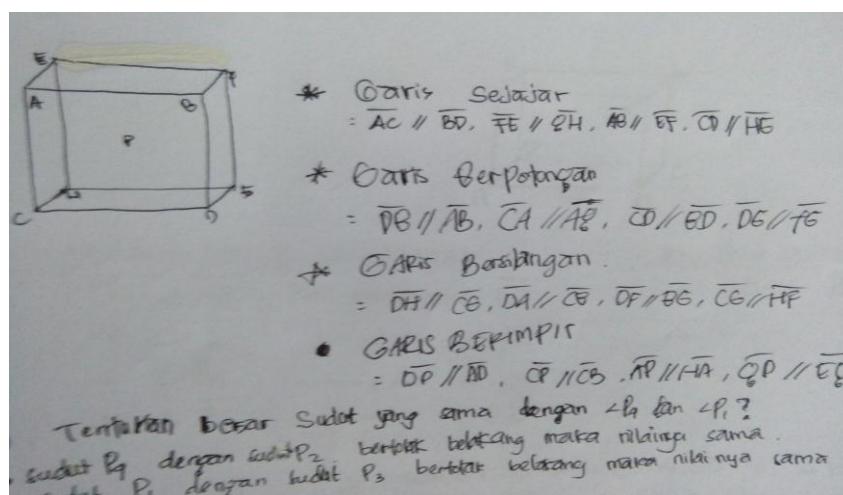 E
F
A
B
P
C
D
* Garis Sejajar
= AC // BD, FE // GH, AB // EF, CD // HG
* Garis Berpotongan
= DB // AB, CA // AE, CD // BD, DG // FG
* GARIS Bersilangan
= DH // CG, DA // CB, DF // BG, CG // HF
• GARIS BERIMPIT
= DP // AD, CP // CB, AP // HA,
Tentukan besar Sudut yang sama dengan ∠P4 dan ∠P1?
sudut P4 dengan sudut P2 bertolak belakang maka nilainya sama.
P1 dengan sudut P3 bertolak belakang maka nilainya sama